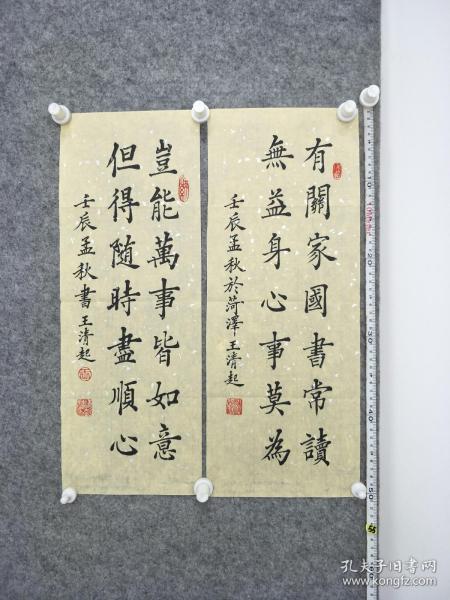 有關家國書常讀
無益身心事莫為
壬辰孟秋於菏澤王清起
豈能萬事皆如意
但得隨時盡順心
壬辰孟秋書王清起
孔夫子旧书网
www.kongfz.com